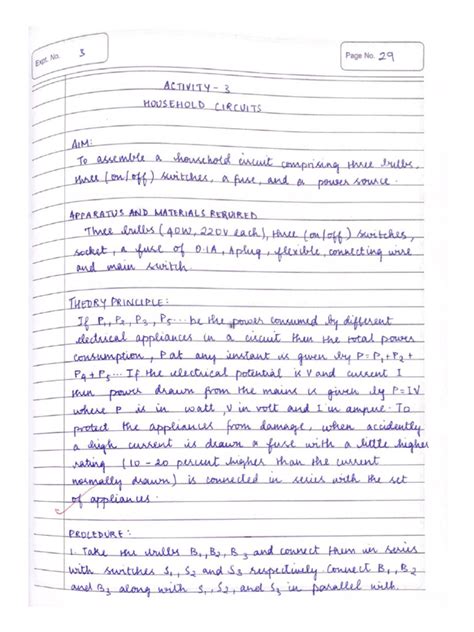 Expt. No. 3
Page No. 29
ACTIVITY - 3
HOUSEHOLD CIRCUITS
AIM:
To assemble a household circuit comprising three bulbs,
three (on/off) switches, a fuse, and a power source.
APPARATUS AND MATERIALS REQUIRED
Three bulbs (40W, 220V each), three (on/off) switches,
socket, a fuse of 0.1A, a plug, flexible, connecting wire
and main switch.
THEORY PRINCIPLE:
If P1, P2, P3, P5... be the power consumed by different
electrical appliances in a circuit then the total power
consumption, P at any instant is given by P = P1 + P2 +
P4 + P5... If the electrical potential is V and current I
then power drawn from the mains is given by P = IV
where P is in watt, V in volt and I in ampere. To
protect the appliances from damage, when accidently
a high current is drawn a fuse with a little higher
rating (10 - 20 percent higher than the current
normally drawn) is connected in series with the set
of appliances.
PROCEDURE:
1. Take the bulbs B1, B2, B3 and connect them in series
with switches S1, S2 and S3 respectively. Connect B1, B2
and B3 along with S1, S2, and S3 in parallel with.